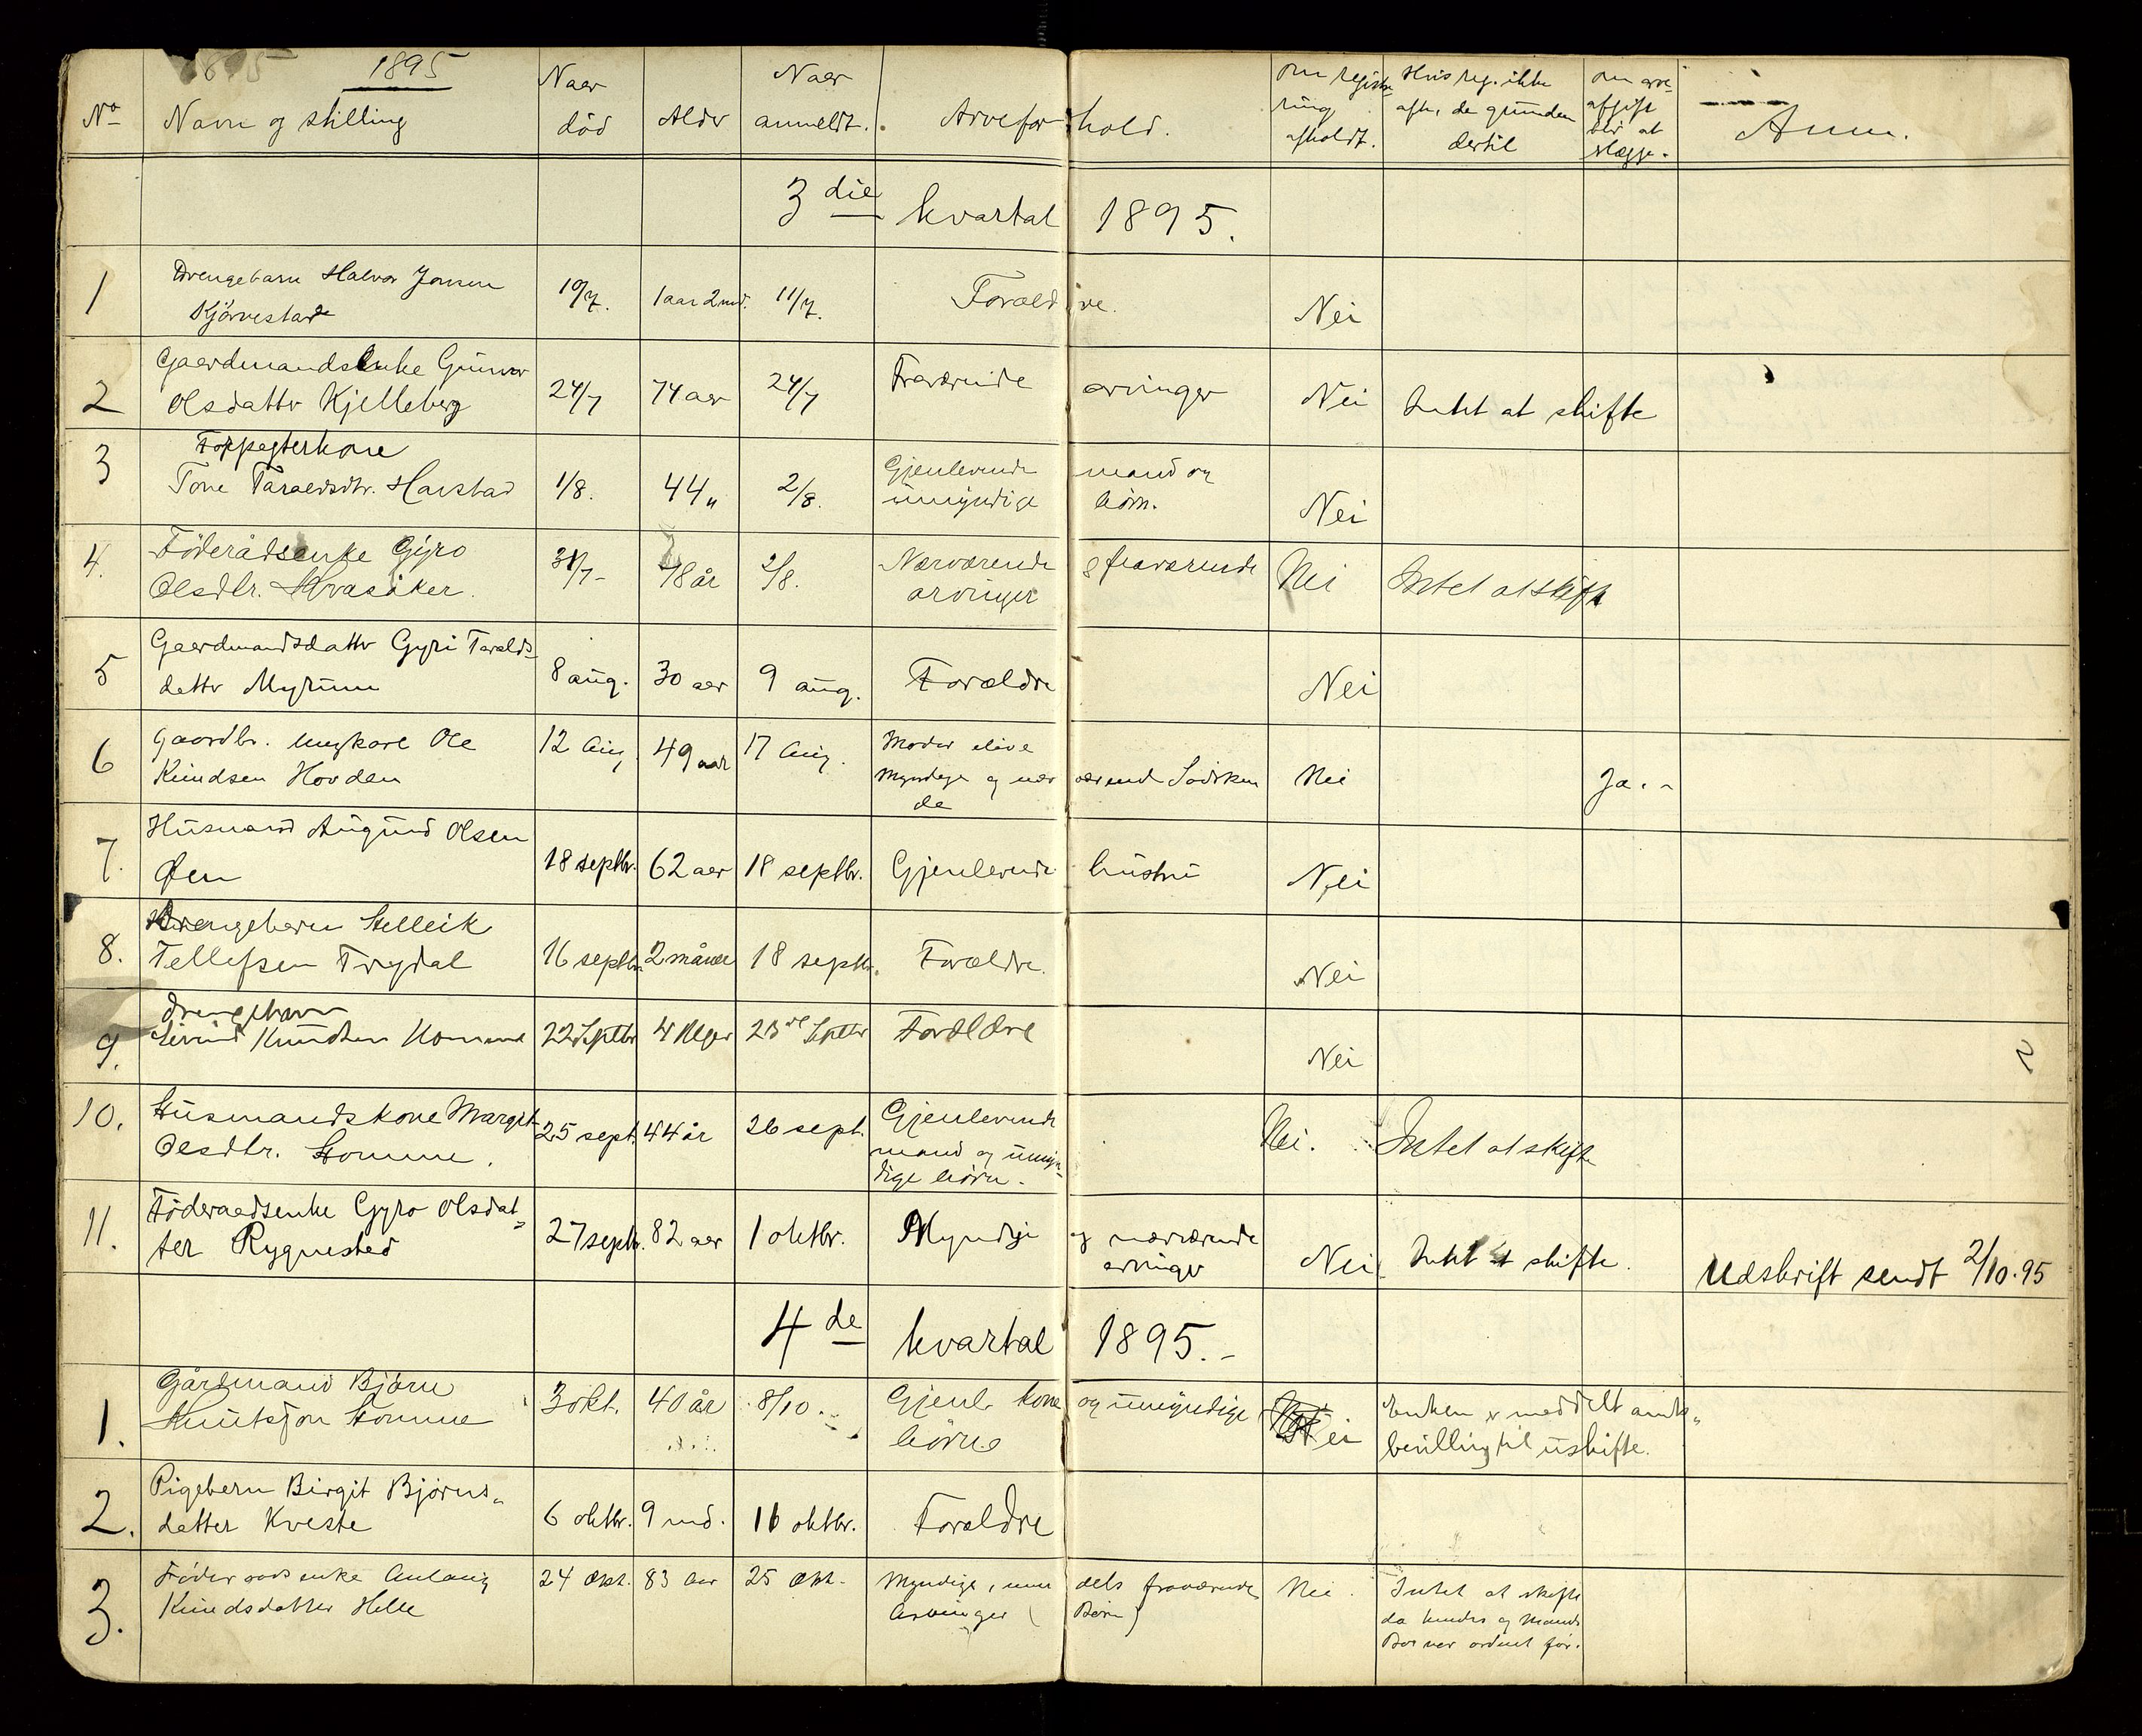 1895
No Navn og stilling Naar död Alder Naar anmeldt. Arveforhold. Om registrering afholdt. Hvis reg. ikke afh., da grunden dertil Om arveafgift blir at ilægge. Anm.
3die kvartal 1895.
1 Drengebarn Halvor Jonsen 10/7. 1 aar 2 md. 11/7. Forældre. Nei
Kjörvestad
2 Gaardmandsenke Gunvor 24/7 74 aar 24/7 Fraværende arvinger Nei Intet at skifte
Olsdatter Kjelleberg
3 Forpagterkone
Tone Taraldsdtr. Harstad 1/8. 44 " 2/8. Gjenlevende mand og
umyndige börn. Nei
4. Föderådsenke Gyro 31/7- 78 år 2/8. Nærværende & fraværende Nei Intet at skifte
Olsdtr. Hvasåker. arvinger
5 Gaardmandsdatter Gyri Taralds-
datter Myrum 8 aug. 30 aar 9 aug. Forældre Nei
6 Gaardbr. ungkarl Ole 12 Aug 49 aar 17 Aug. Moder ilive
Knudsen Hovden Myndige og nærværende Södsken Nei Ja.-
7. Husmand Augund Olsen
Øen 18 septbr. 62 aar 18 septbr. Gjenlevende hustru Nei
8. Drengebarn Helleik
Tellefsen Trydal 16 septbr. 2 måneder 18 septbr. Forældre. Nei
9. Drengebarn
Eivind Knudsen Homme 22 Septbr 4 Uger 23de Septbr Forældre Nei
10. Husmandskone Margit 25 sept. 44 år 26 sept. Gjenlevende Nei. Intet at skifte
Olsdtr. Homme. mand og umyn-
dige börn.
11. Föderaadsenke Gyro Olsdat-
ter Rygnestad 27 septb. 82 aar 1 oktbr. Myndige og nærværende
arvinger Nei Intet at skifte. Udskrift sendt 2/10.95
4de kvartal 1895.-
1. Gårdmand Björn 3 okt. 40 år 8/10. Gjenl. kone og umyndige Nei Enken er meddelt amts-
Knutsson Homme börn bevilling til uskifte.
2. Pigebarn Birgit Björns-
datter Kveste 6 oktbr. 9 md. 11 oktbr. Forældre
3. Föderaadsenke Anlaug 24 Okt. 83 Aar 25 Okt. Myndige, dels fraværende Nei. Intet at skifte
Knudsdatter Helle Arvinger (Börn) da hendes og Mands
Bo var ordnet för.